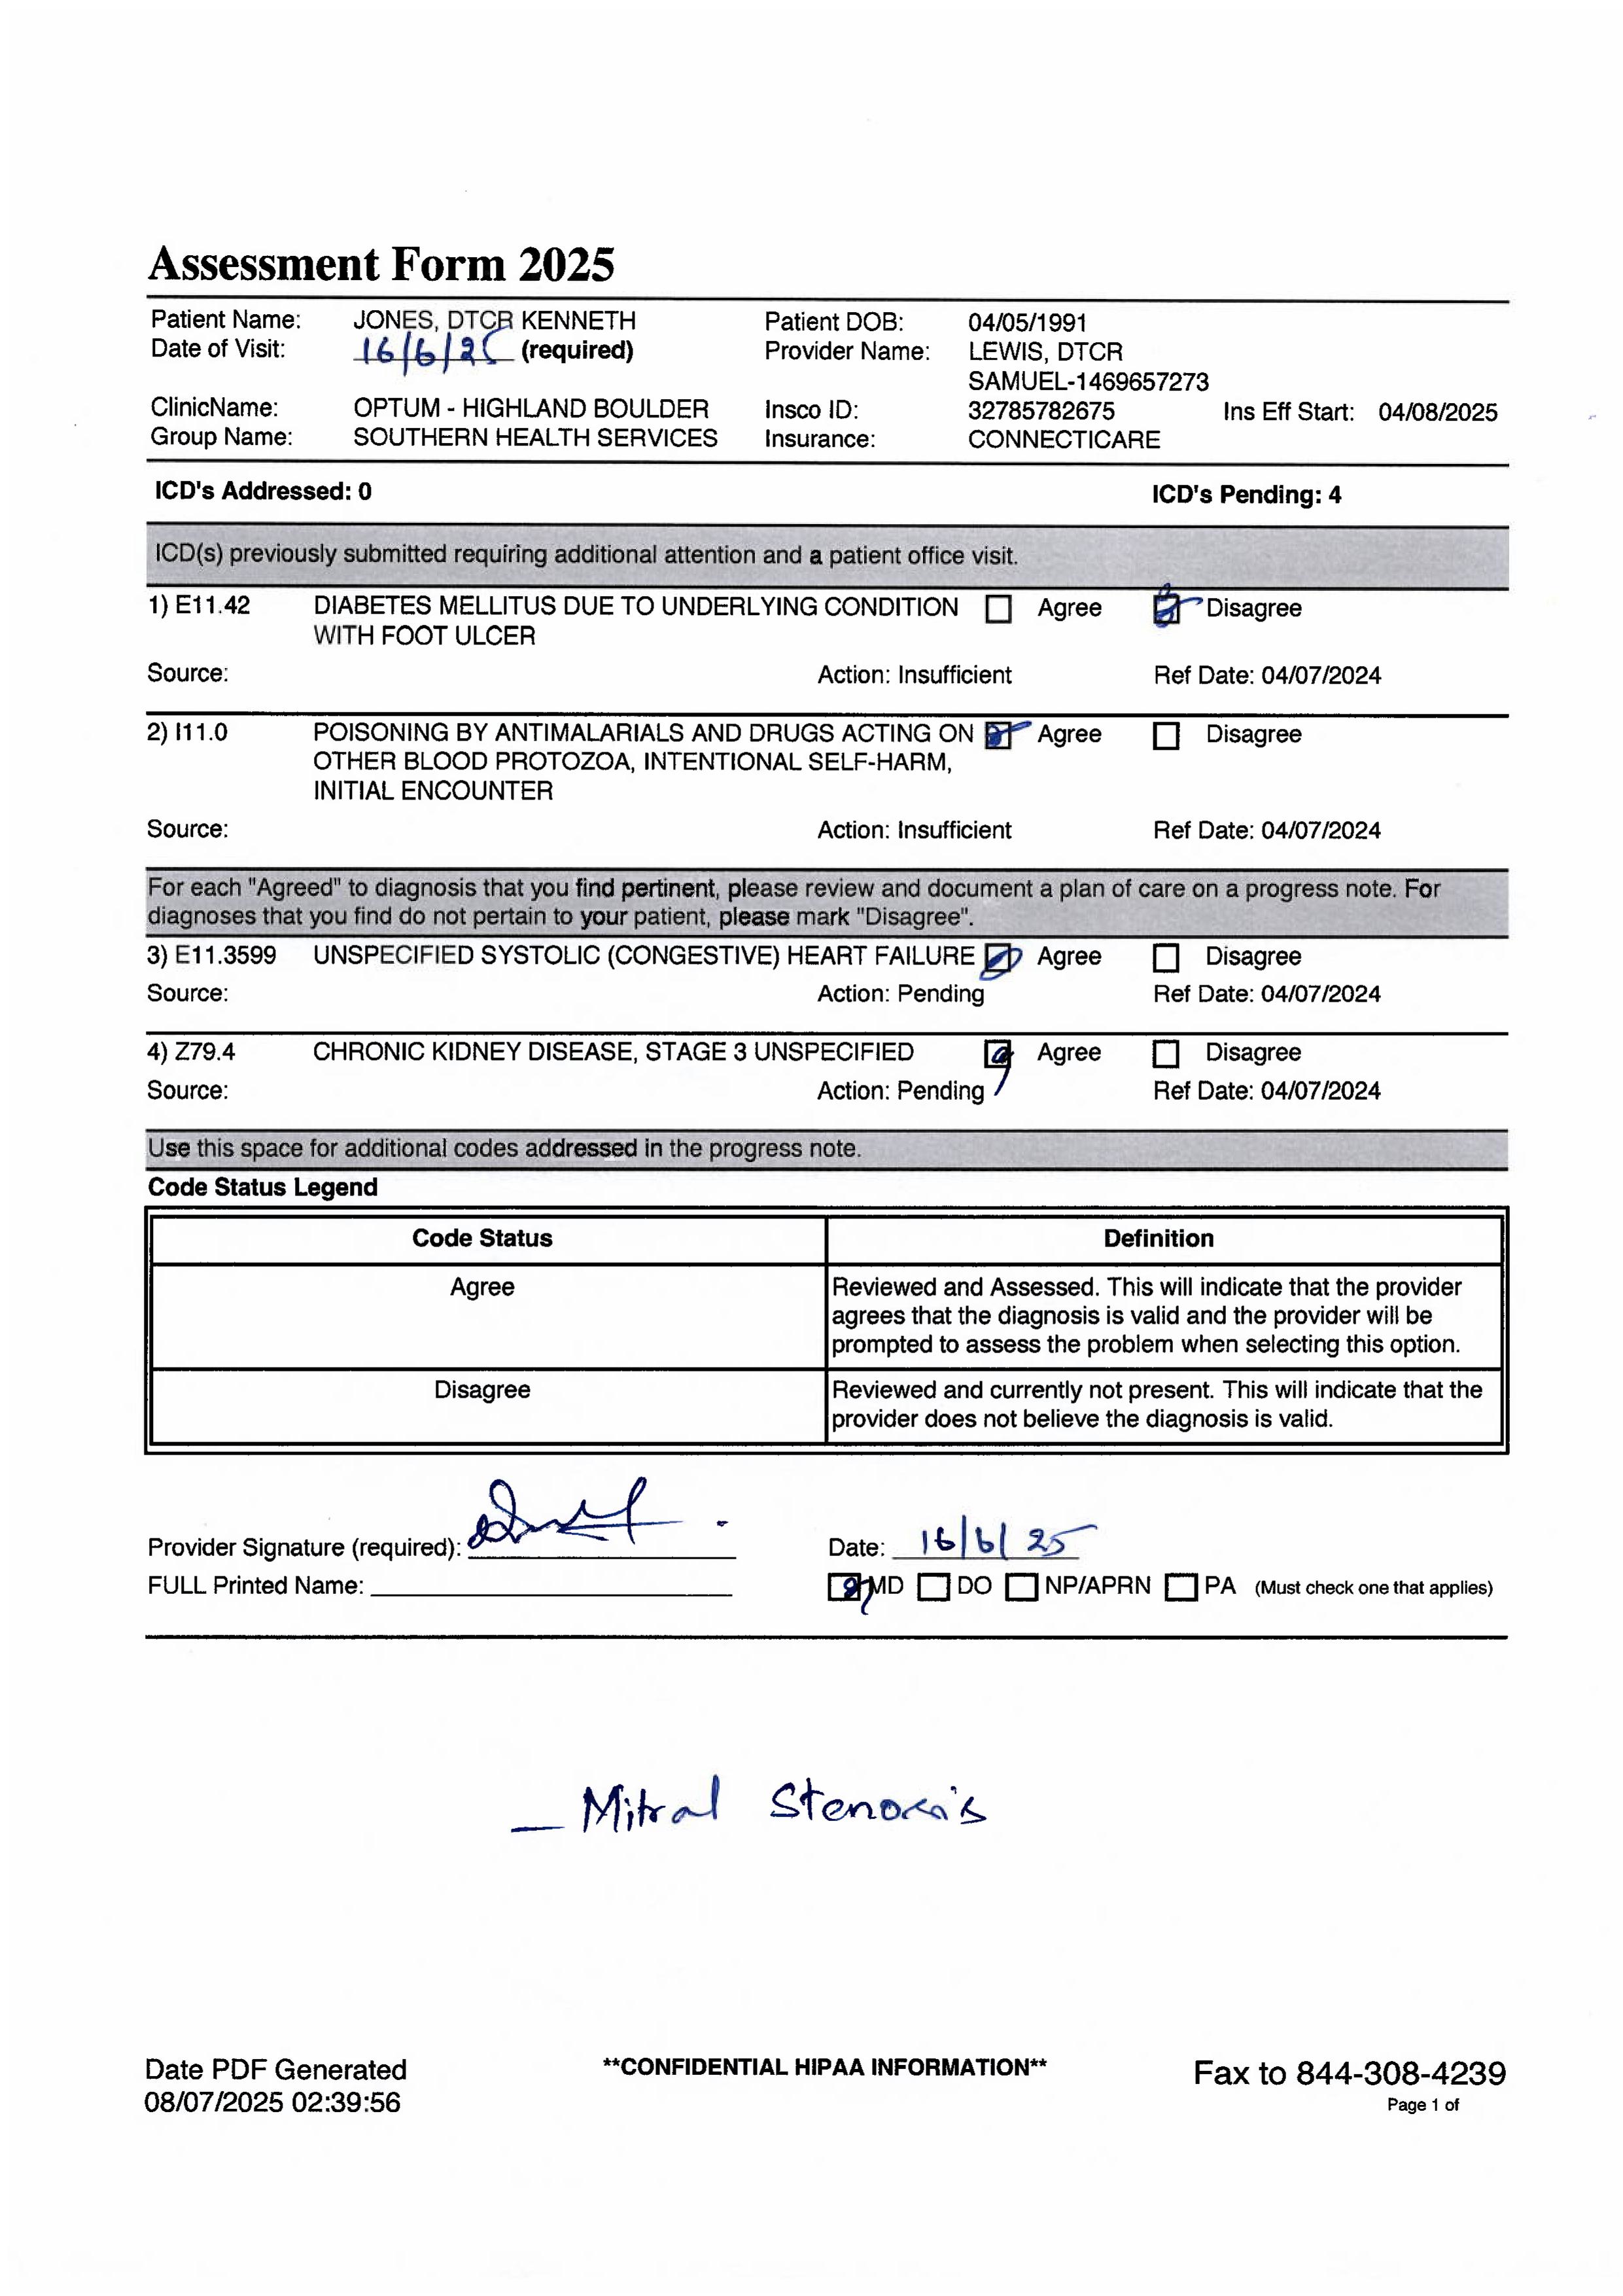 Assessment Form 2025
Patient Name: JONES, DTCR KENNETH Patient DOB: 04/05/1991
Date of Visit: 16/6/25 (required) Provider Name: LEWIS, DTCR
SAMUEL-1469657273
ClinicName: OPTUM - HIGHLAND BOULDER Insco ID: 32785782675 Ins Eff Start: 04/08/2025
Group Name: SOUTHERN HEALTH SERVICES Insurance: CONNECTICARE
ICD's Addressed: 0 ICD's Pending: 4
ICD(s) previously submitted requiring additional attention and a patient office visit.
1) E11.42 DIABETES MELLITUS DUE TO UNDERLYING CONDITION Agree Disagree
WITH FOOT ULCER
Source: Action: Insufficient Ref Date: 04/07/2024
2) I11.0 POISONING BY ANTIMALARIALS AND DRUGS ACTING ON Agree Disagree
OTHER BLOOD PROTOZOA, INTENTIONAL SELF-HARM,
INITIAL ENCOUNTER
Source: Action: Insufficient Ref Date: 04/07/2024
For each "Agreed" to diagnosis that you find pertinent, please review and document a plan of care on a progress note. For
diagnoses that you find do not pertain to your patient, please mark "Disagree".
3) E11.3599 UNSPECIFIED SYSTOLIC (CONGESTIVE) HEART FAILURE Agree Disagree
Source: Action: Pending Ref Date: 04/07/2024
4) Z79.4 CHRONIC KIDNEY DISEASE, STAGE 3 UNSPECIFIED Agree Disagree
Source: Action: Pending Ref Date: 04/07/2024
Use this space for additional codes addressed in the progress note.
Code Status Legend
Code Status Definition
Agree Reviewed and Assessed. This will indicate that the provider
agrees that the diagnosis is valid and the provider will be
prompted to assess the problem when selecting this option.
Disagree Reviewed and currently not present. This will indicate that the
provider does not believe the diagnosis is valid.
Provider Signature (required): Date: 16/6/25
FULL Printed Name: MD DO NP/APRN PA (Must check one that applies)
_ Mitral Stenosis
Date PDF Generated **CONFIDENTIAL HIPAA INFORMATION** Fax to 844-308-4239
08/07/2025 02:39:56 Page 1 of